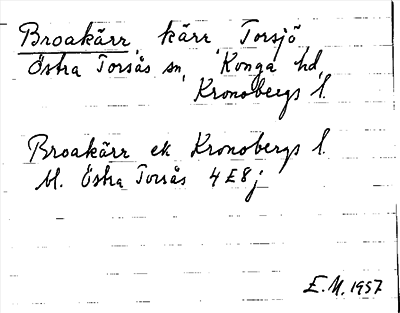 Broakärr, kärr, Torsjö
Östra Torsås sn, Konga hd,
Kronobergs l.
Broakärr ek Kronobergs l.
bl. Östra Torsås 4E8j
E.M. 1957